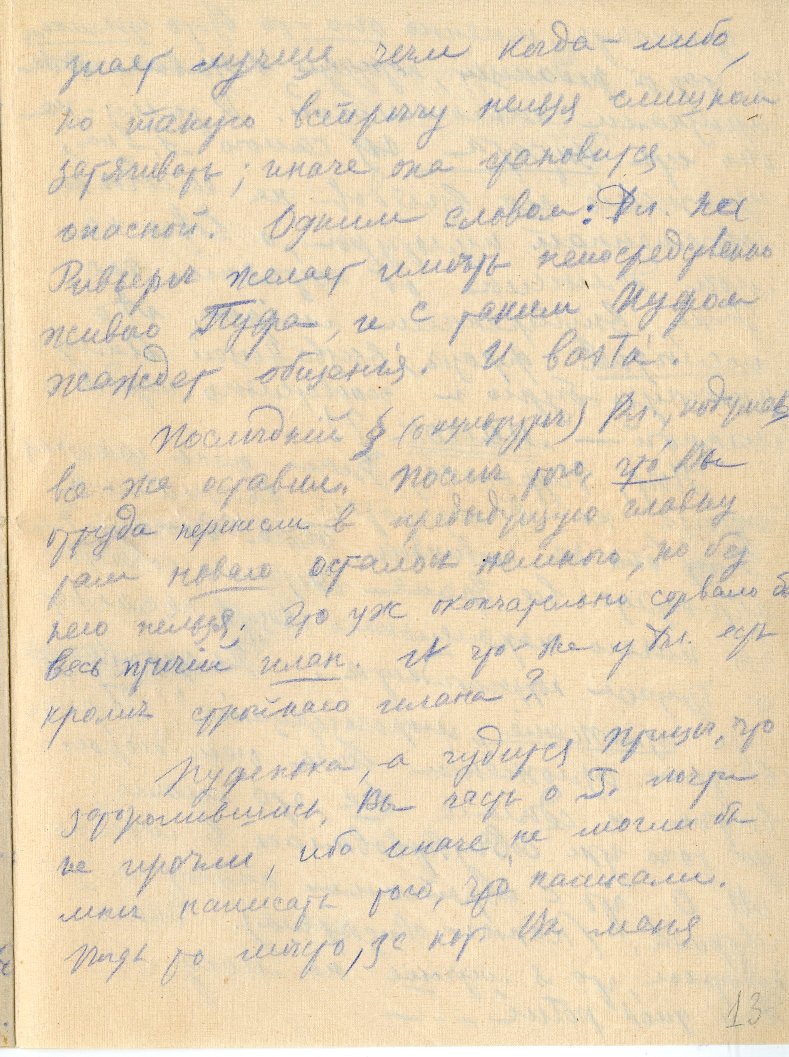 знает лучше чем когда-либо,
но такую встрѣчу нельзя слишком
затягивать; иначе она становится
опасной. Одним словом: Вл. на
Ривьерѣ желает имѣть непосредственно
живаго Пуфа, и с таким Пуфом
жаждет общенія. И баста.
Послѣдній § (о культурѣ) Вл., подумав
все-же оставил. Послѣ того, что Вы
оттуда перенесли в предыдущую главку
там новаго осталось немного, но без
него нельзя. Это уж окончательно сорвало бы
весь птичій план. А что-же у Вл. есть
кромѣ стройнаго плана?
Пуденька, а чудится Птицѣ, что
заторопившись, Вы часть о Г. почти
не прочли, ибо иначе не могли бы
мнѣ написать того, что написали.
Вѣдь то мѣсто, за кот. Вы меня
13